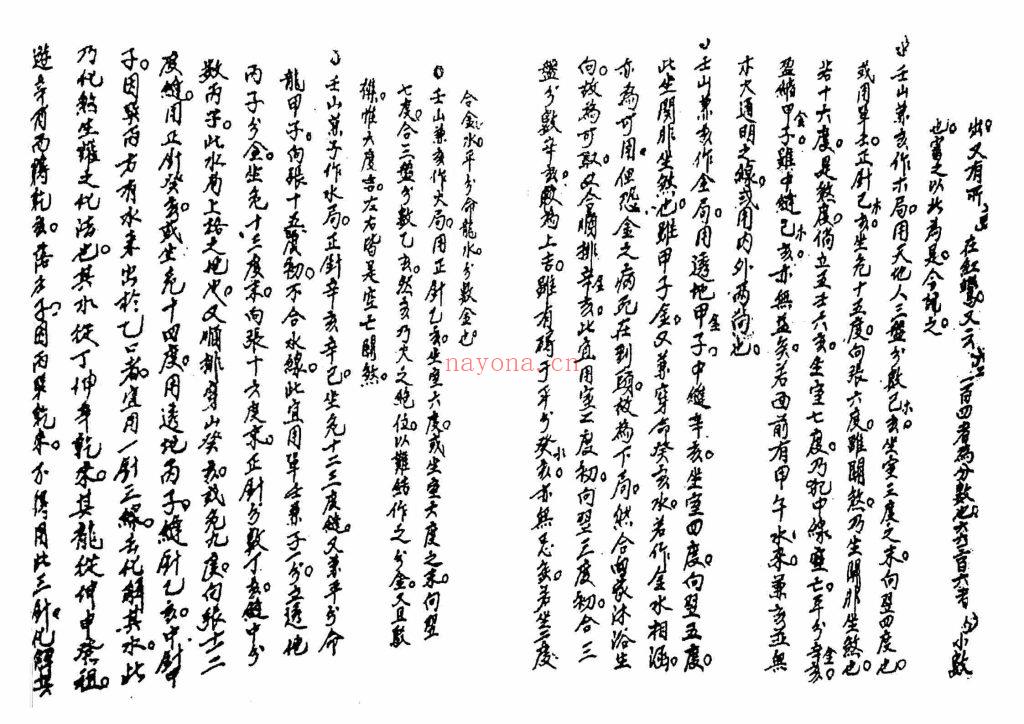 出又有所 在紅鸞又云 一百四者為分數也六百六者 小數
也嘗之以此為是今記之
壬山兼亥作木局用天地人三盤分數己亥坐室三度之末向翌四度也
或用單壬正針己亥坐危十五度向張六度雖關煞乃生關非坐煞也
若十六度是煞度倘立五壬六亥坐室七度乃犯中線空亡年分辛亥
盈縮甲子雖中縫己亥亦無益矣若西前有甲午水來兼亥並無
木大通明之線或用內外兩向也
壬山兼亥作金局用透地甲子中縫辛亥坐室四度向翌五度
此坐關非坐煞也雖甲子金又兼穿命癸亥水若作金水相涵
亦為可用但恐金之病死在到頭故為下局然合向家沐浴生
向故為可取又合順排辛亥此宜用室二度初向翌三度初合三
盤分數辛亥故為上吉雖有碍于平分癸亥亦無忌矣若坐二度
合金水平分命龍水分數金也
壬山兼亥作火局用正針乙亥坐室六度或坐室六度之末向翌
七度合三盤分數乙亥然亥乃火之絕位以難結作之分金又且取
猶惟六度吉左右皆是空亡關煞
壬山兼子作水局正針辛亥辛巳坐危十二三度縫又兼平分命
龍甲子向張十五度初不合水線此宜用單壬兼子一分立透地
丙子分金坐危十三度末向張十六度末正針分數丁亥縫中分
數丙子此水局上格之地也又順排穿山癸亥或危九度向張十二
度縫用正針癸亥或坐危十四度用透地丙子縫針乙亥中針
子因與丙方有水來出於乙口者宜用一針三線去化解其水此
乃化煞生權之化法也其水從丁坤辛乾來其龍從坤申癸祖
遊辛有而轉乾亥落壬子因丙與乾來不得用此三針化解其